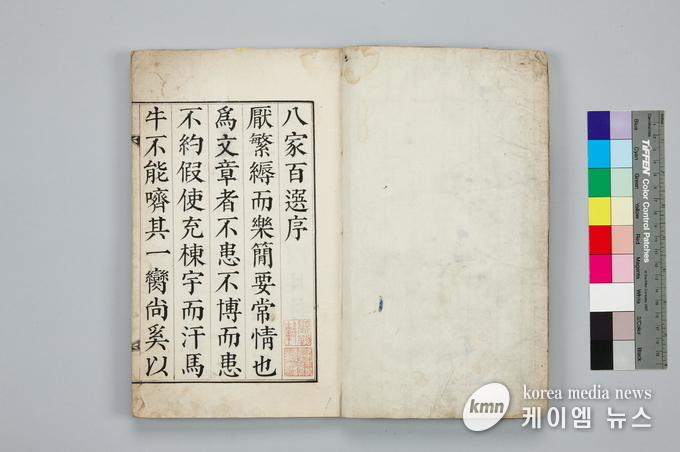 八家百選序
厭繁縟而樂簡要常情也
爲文章者不患不博而患
不約假使充棟宇而汗馬
牛不能嚌其一臠尚奚以
TIFFEN Color Control Patches
Blue
Cyan
Green
Yellow
Red
Magenta
White
3/Color
Black
kmn
korea media news
케이엠 뉴스